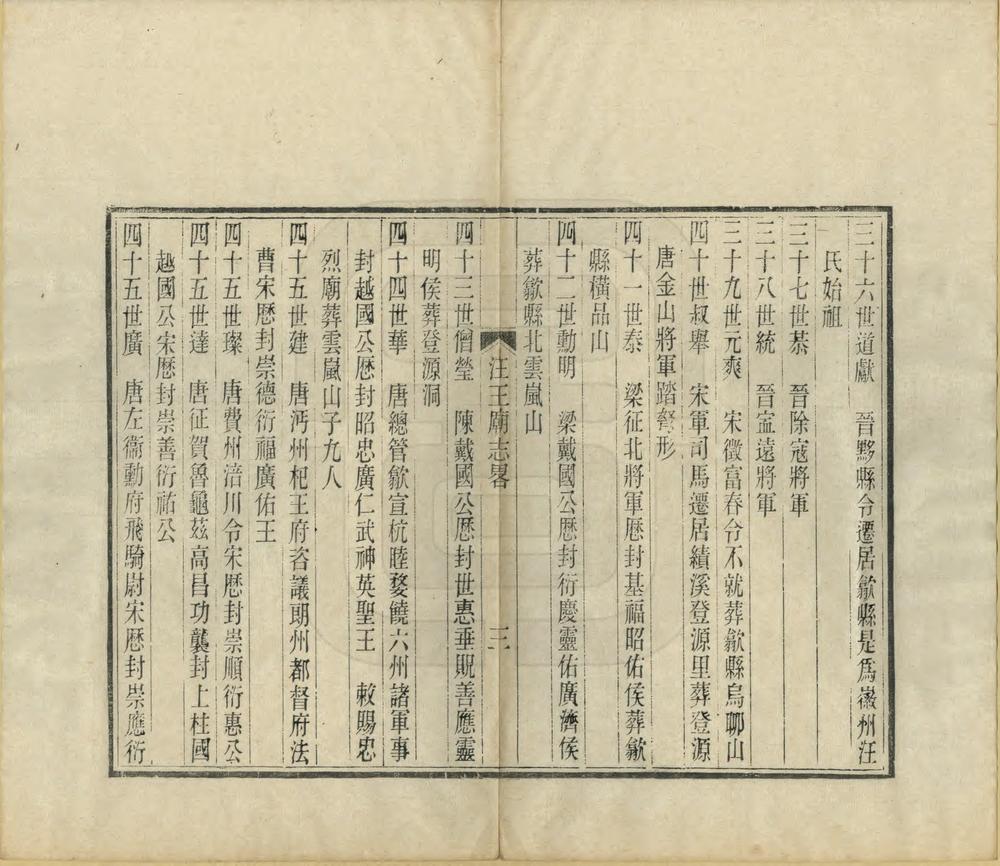 三十六世道獻　晉黟縣令遷居歙縣是爲徽州汪
氏始祖
三十七世棊　晉除寇將軍
三十八世統　晉寍遠將軍
三十九世元爽　宋徵富春令不就葬歙縣烏聊山
四十世叔舉　宋軍司馬遷居績溪登源里葬登源
唐金山將軍踏弩形
四十一世泰　梁征北將軍歷封基福昭佑侯葬歙
縣橫品山
四十二世勳明　梁戴國公歷封衍慶靈佑廣濟侯
葬歙縣北雲嵐山
汪王廟志畧　三
四十三世僧瑩　陳戴國公歷封世惠垂貺善應靈
明侯葬登源洞
四十四世華　唐總管歙宣杭睦婺饒六州諸軍事
封越國公歷封昭忠廣仁武神英聖王　敕賜忠
烈廟葬雲嵐山子九人
四十五世建　唐沔州杷王府咨議朗州都督府法
曹宋歷封崇德衍福廣佑王
四十五世璨　唐費州涪川令宋歷封崇順衍惠公
四十五世達　唐征賀魯龜茲高昌功襲封上柱國
越國公宋歷封崇善衍祐公
四十五世廣　唐左衞勳府飛騎尉宋歷封崇應衍